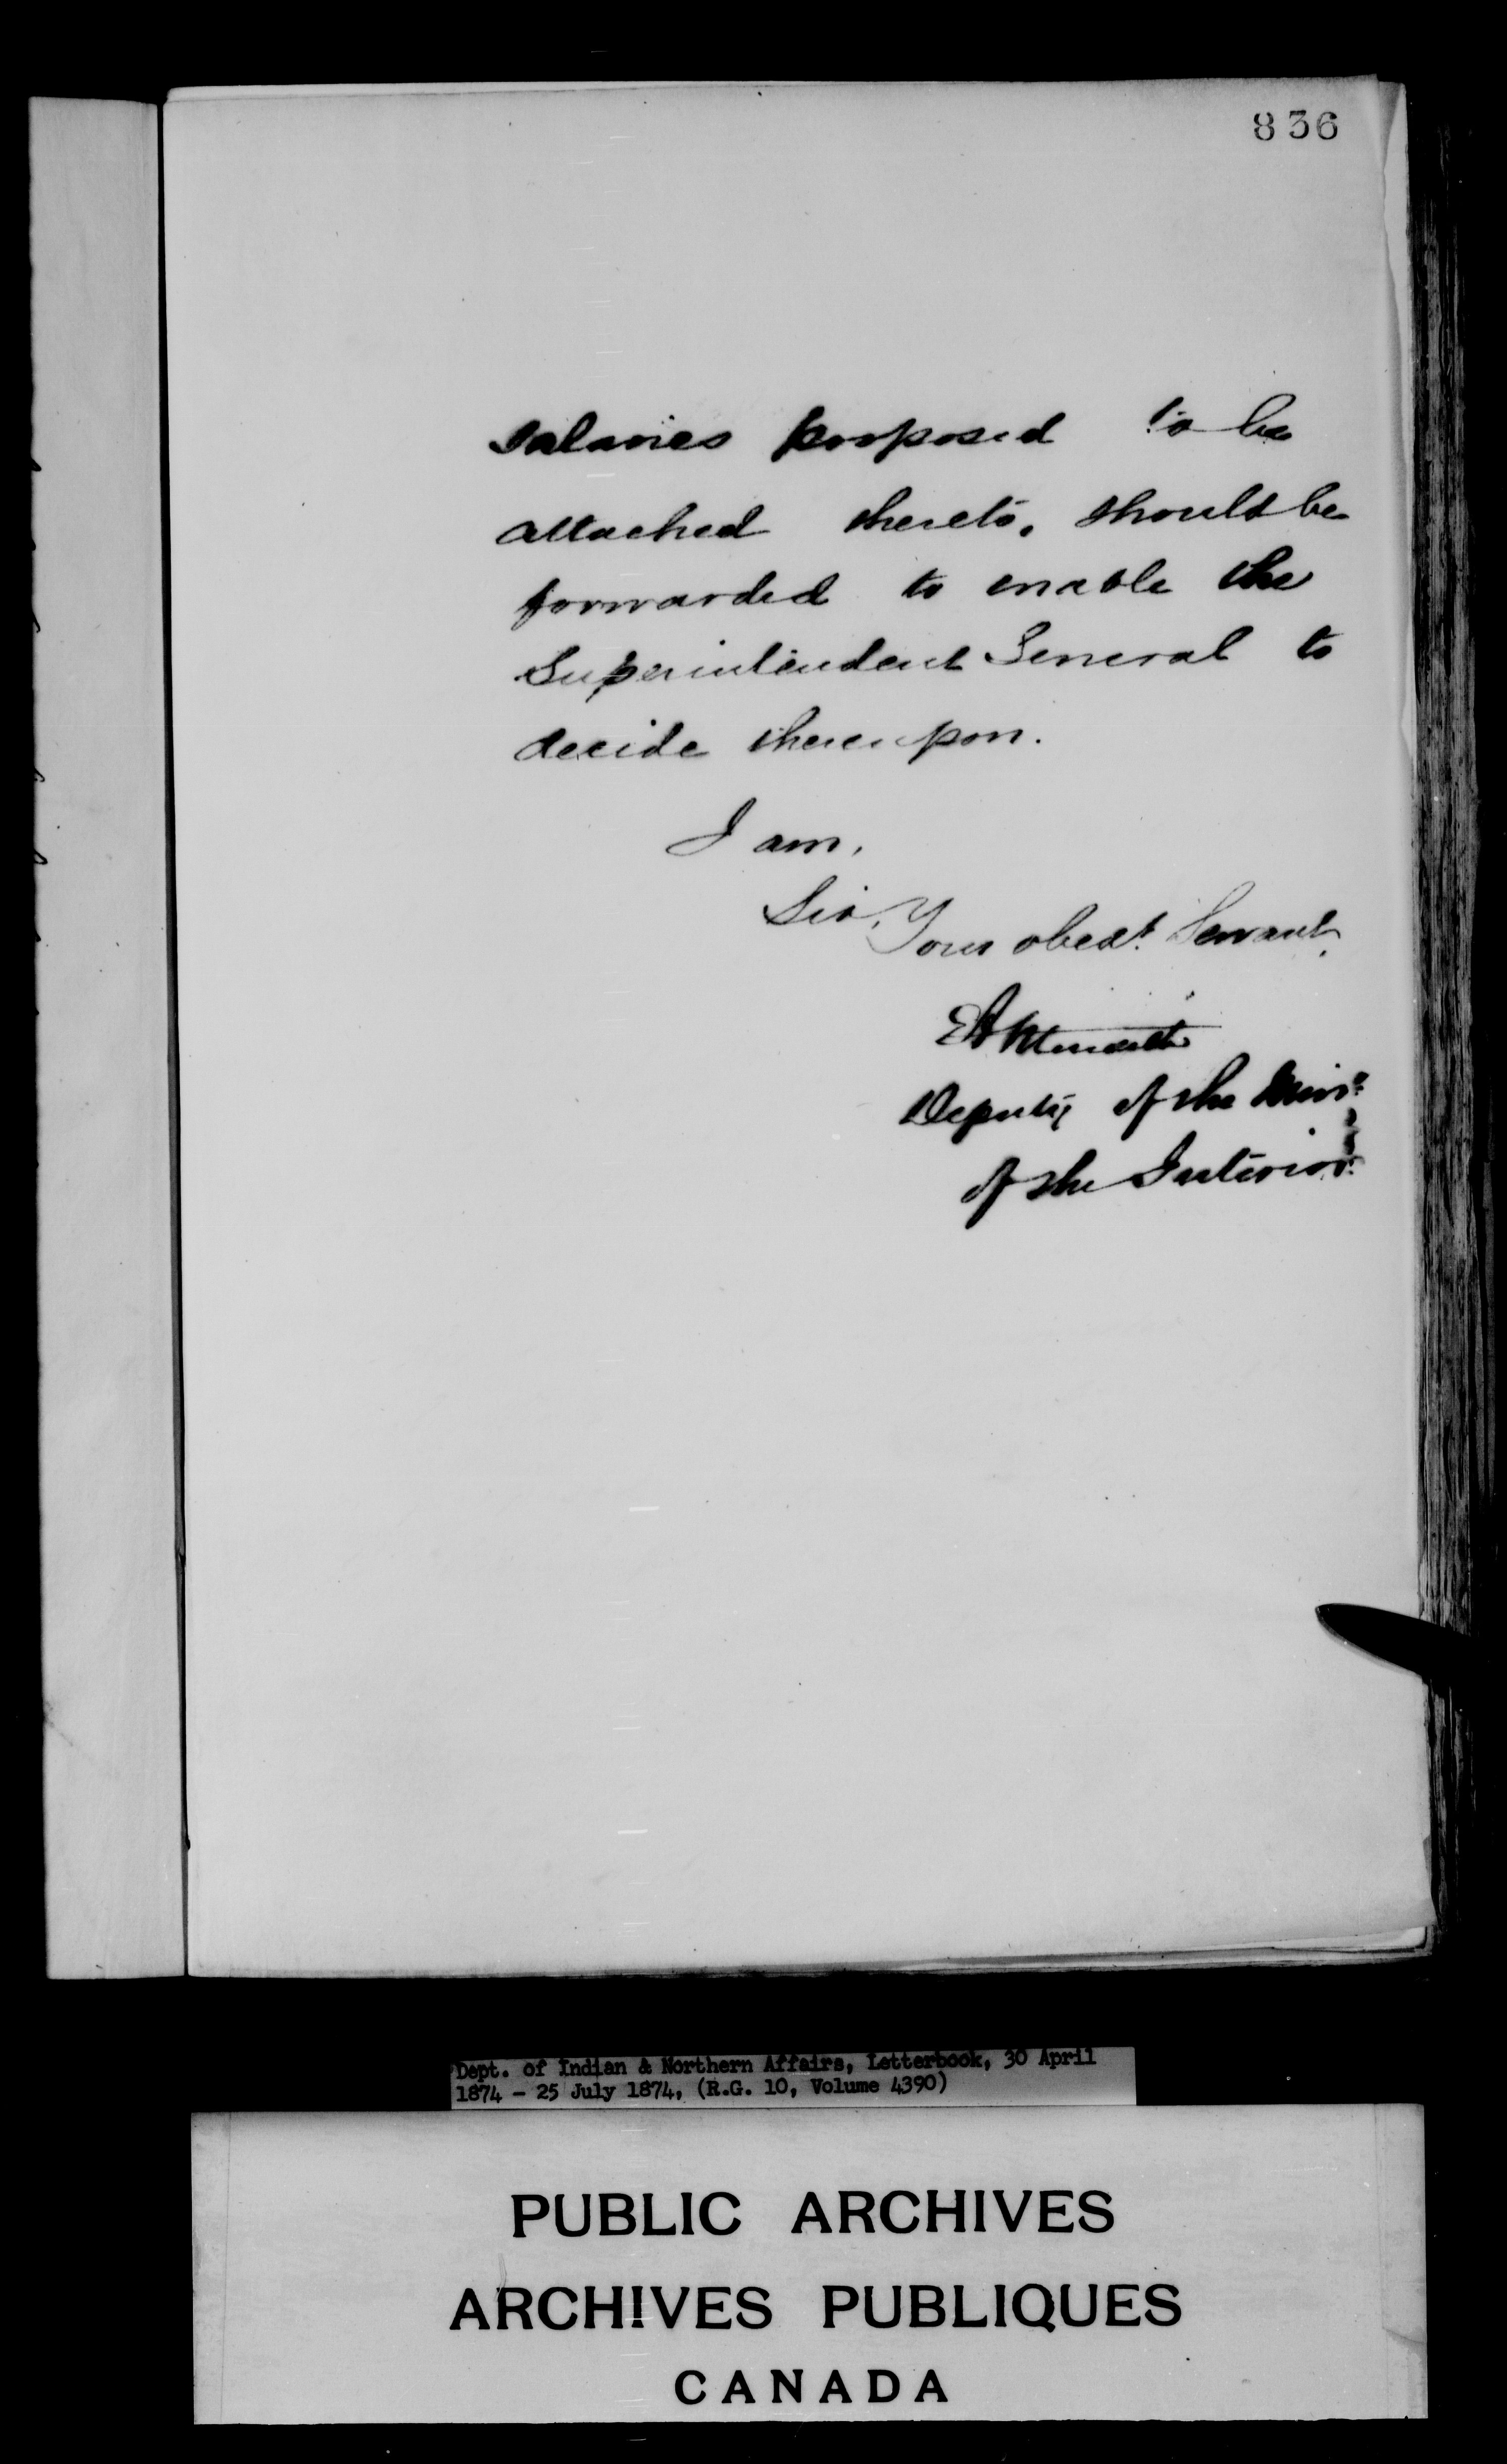 836
salaries proposed to be
attached thereto, should be
forwarded to enable the
Superintendent General to
decide thereupon.
I am,
Sir,
Your obedt. Servant,
Deputy of the Minr.
of the Interior.
Dept. of Indian & Northern Affairs, Letterbook, 30 April
1874 - 25 July 1874, (R.G. 10, Volume 4390)
PUBLIC ARCHIVES
ARCHIVES PUBLIQUES
CANADA